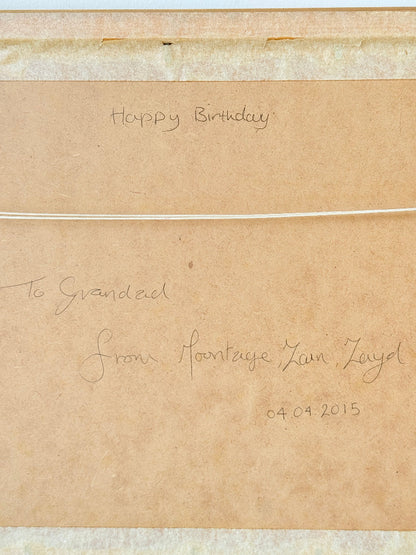 Happy Birthday
To Grandad
from Moontage, Zain, Zayd
04.04.2015